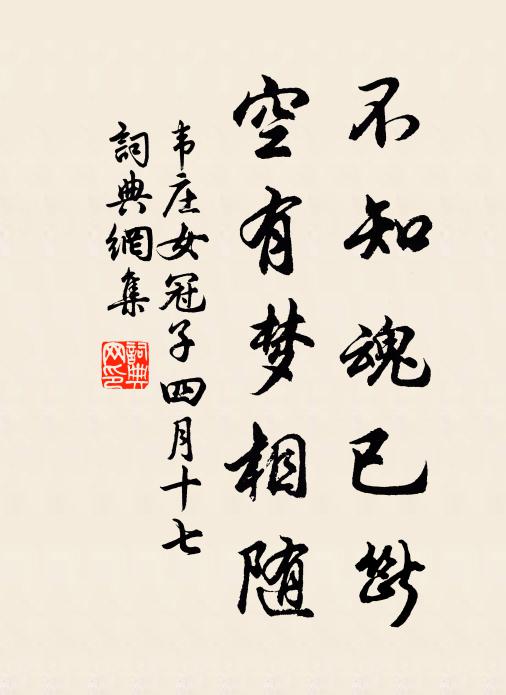 不知魂已断
空有梦相随
韦庄女冠子四月十七
詞典網集
詞典网印